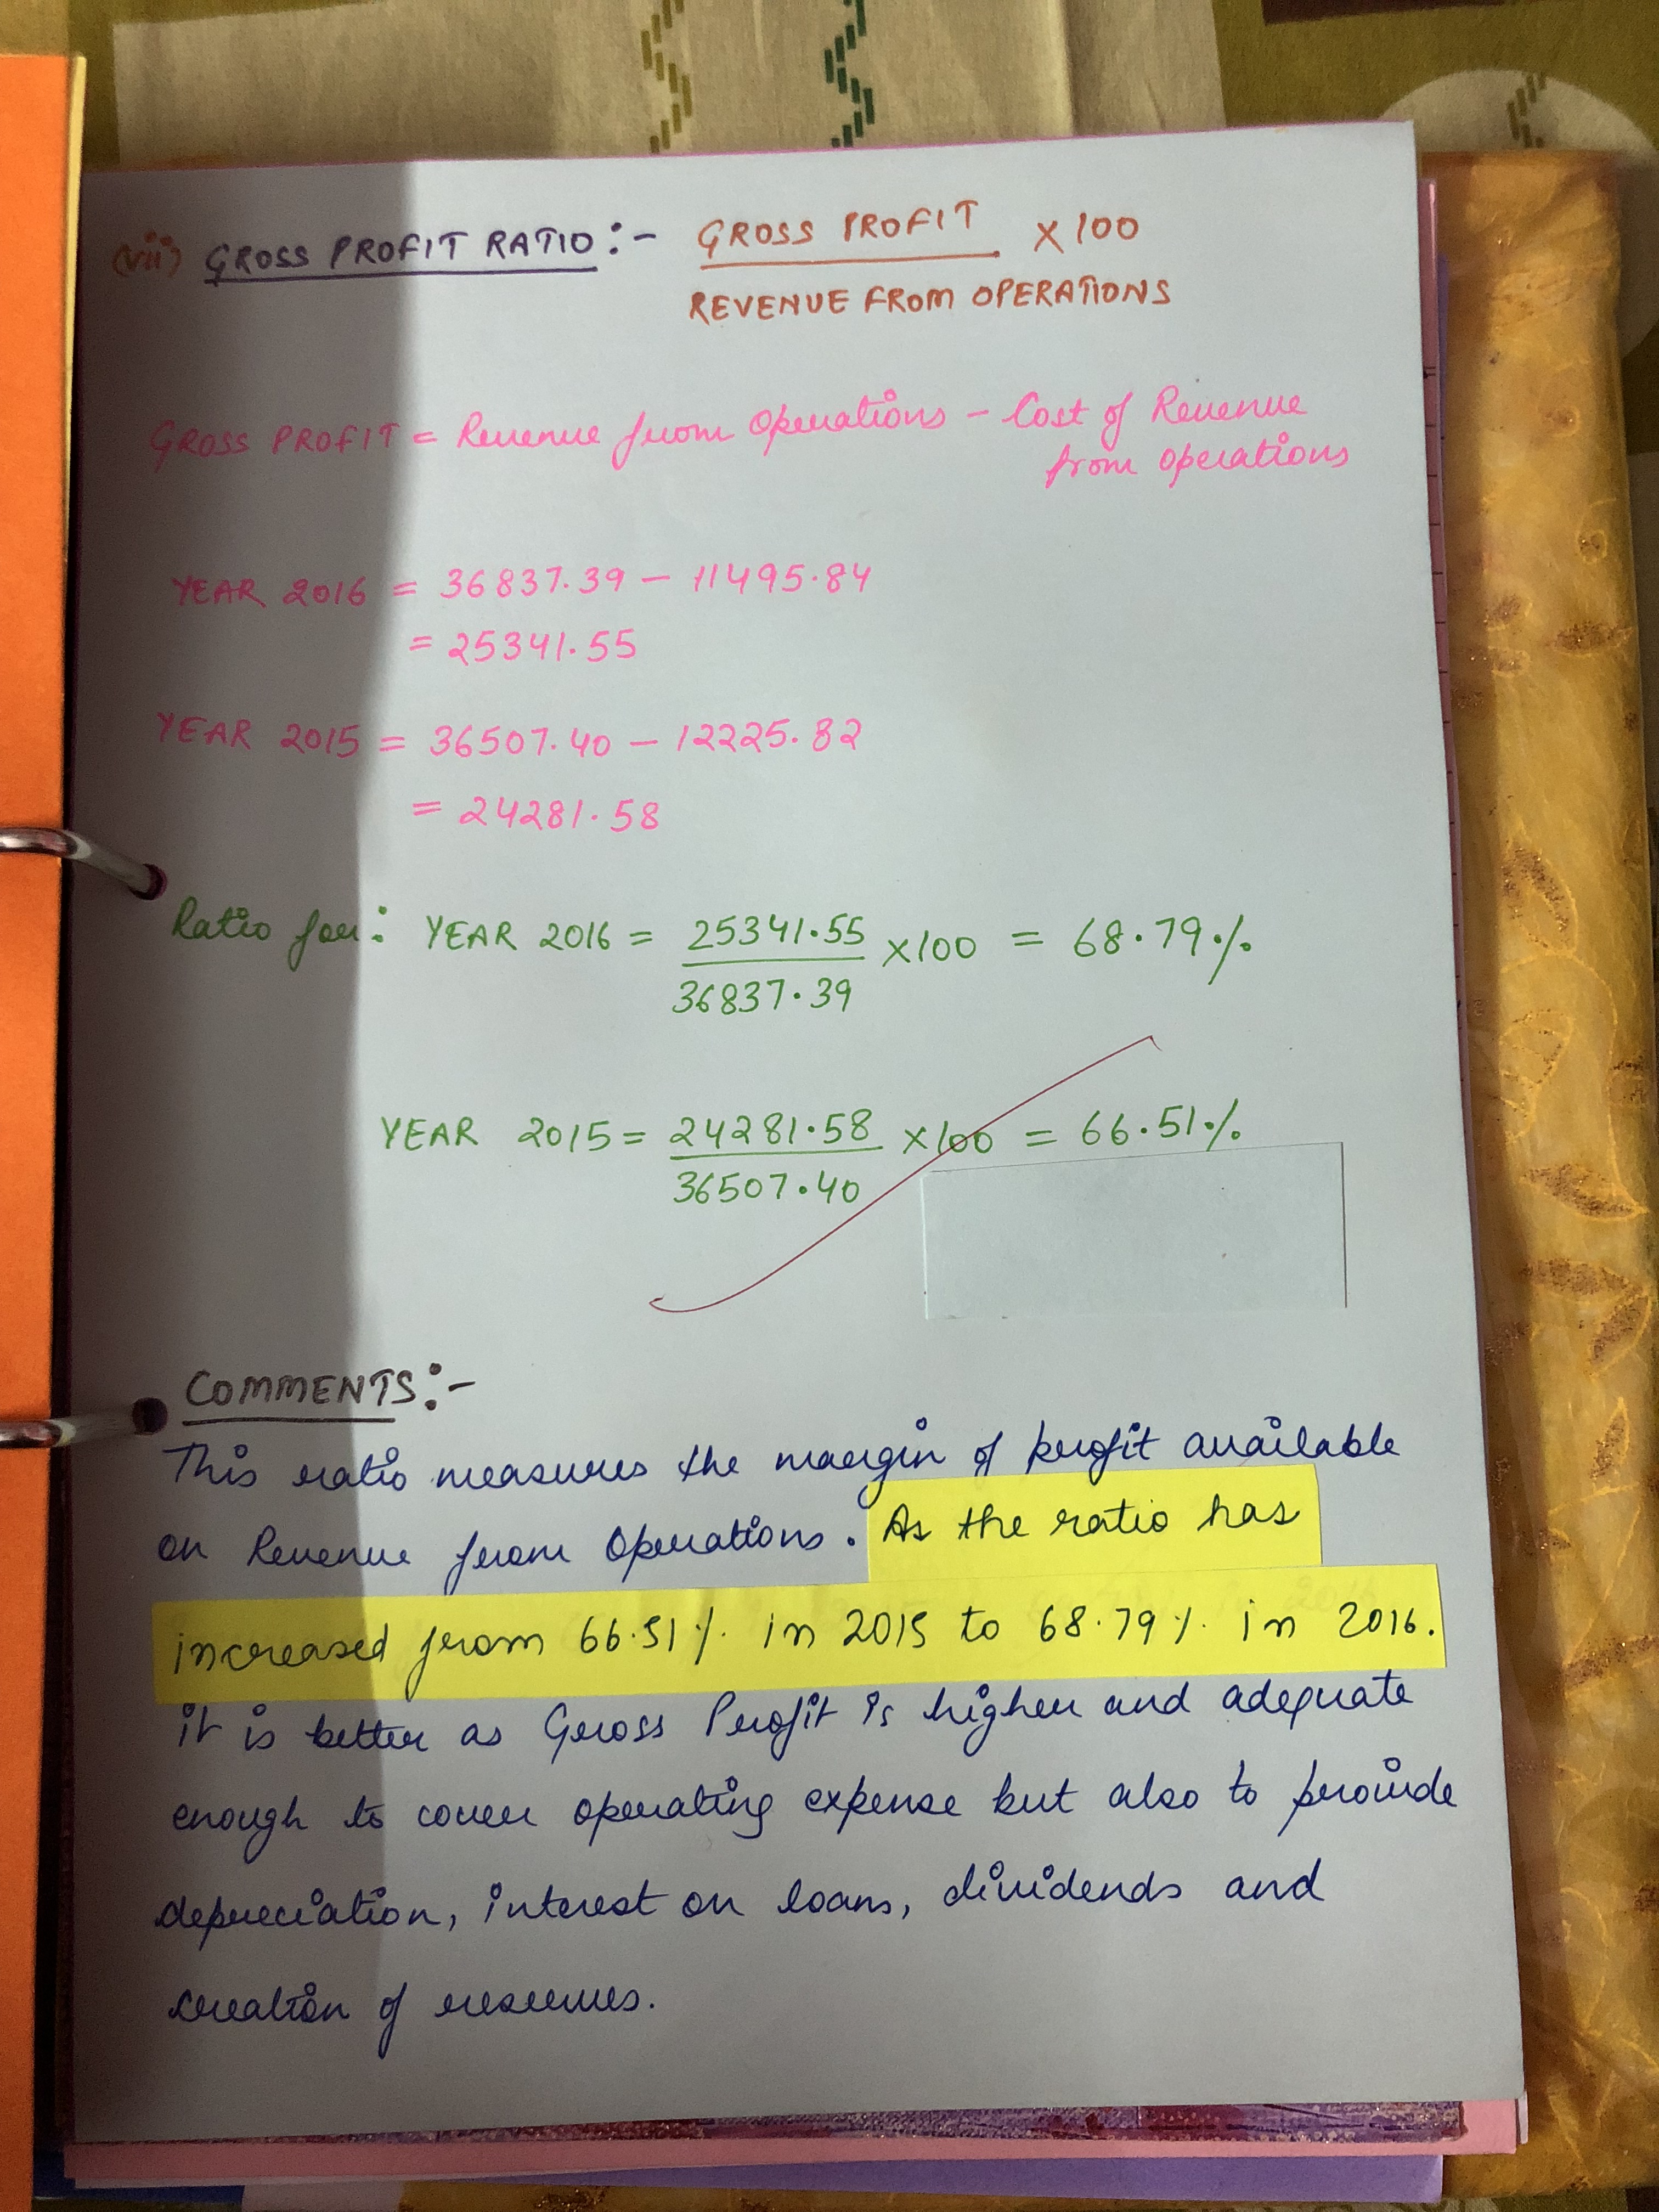 (vii) GROSS PROFIT RATIO:- GROSS PROFIT × 100
REVENUE FROM OPERATIONS
GROSS PROFIT = Revenue from Operations - Cost of Revenue
from operations
YEAR 2016 = 36837.39 - 11495.84
= 25341.55
YEAR 2015 = 36507.40 - 12225.82
= 24281.58
Ratio for: YEAR 2016 = 25341.55 ×100 = 68.79%
36837.39
YEAR 2015 = 24281.58 ×100 = 66.51%
36507.40
COMMENTS:-
This ratio measures the margin of profit available
on Revenue from Operations. As the ratio has
increased from 66.51% in 2015 to 68.79% in 2016.
it is better as Gross Profit is higher and adequate
enough to cover operating expense but also to provide
depreciation, interest on loans, dividends and
creation of reserves.